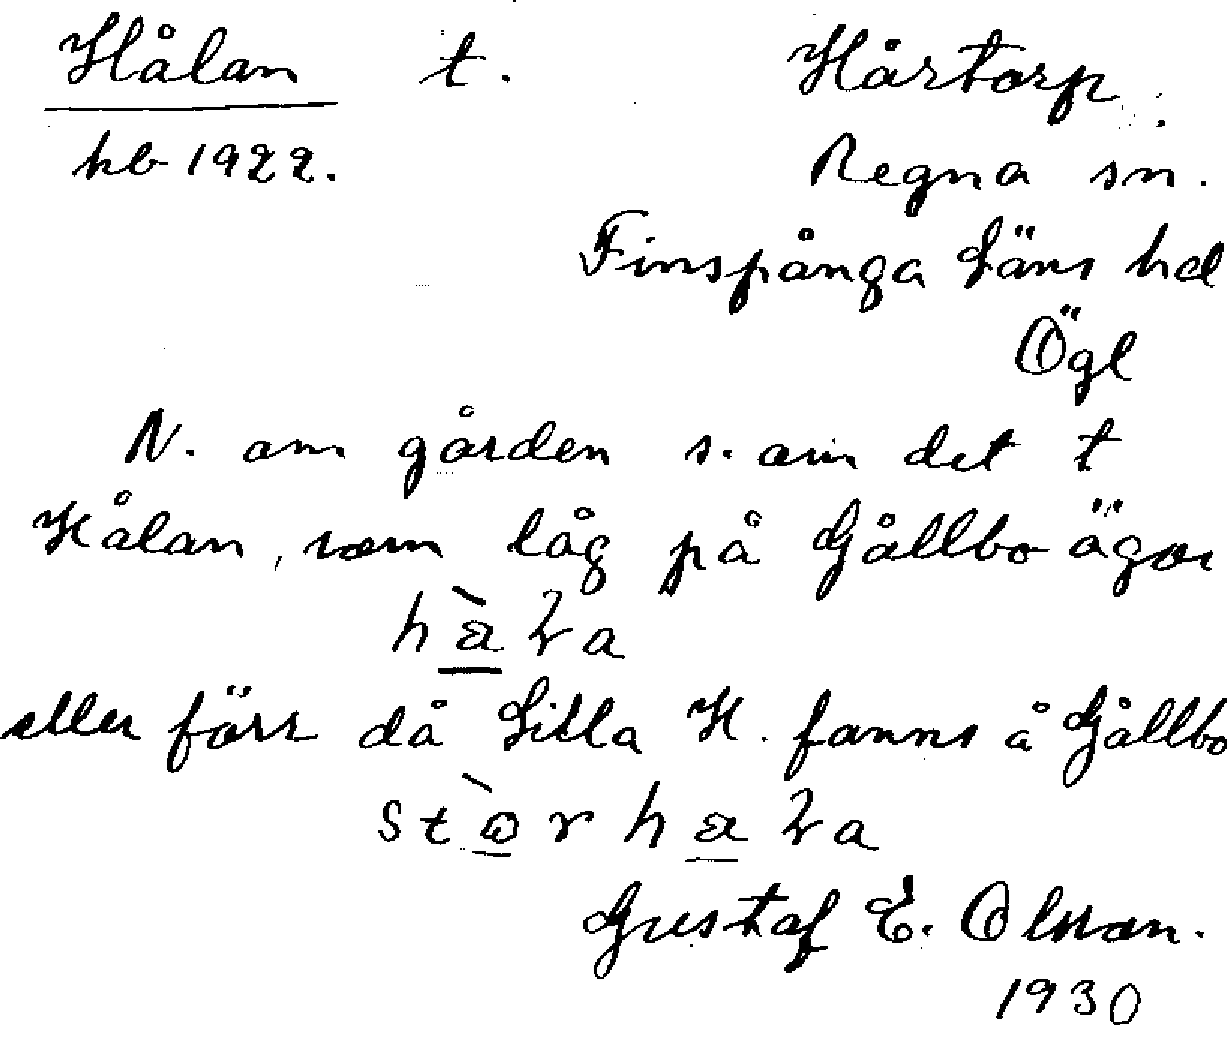 Hålan t. Hårtorp.
hb 1922. Regna sn.
Finspånga Läns hd
Ögl
N. om gården s. om det t
Hålan, som låg på Gållbo ägor
eller förr då Lilla H. fanns å Gållbo
Gustaf E. Olsson.
1930